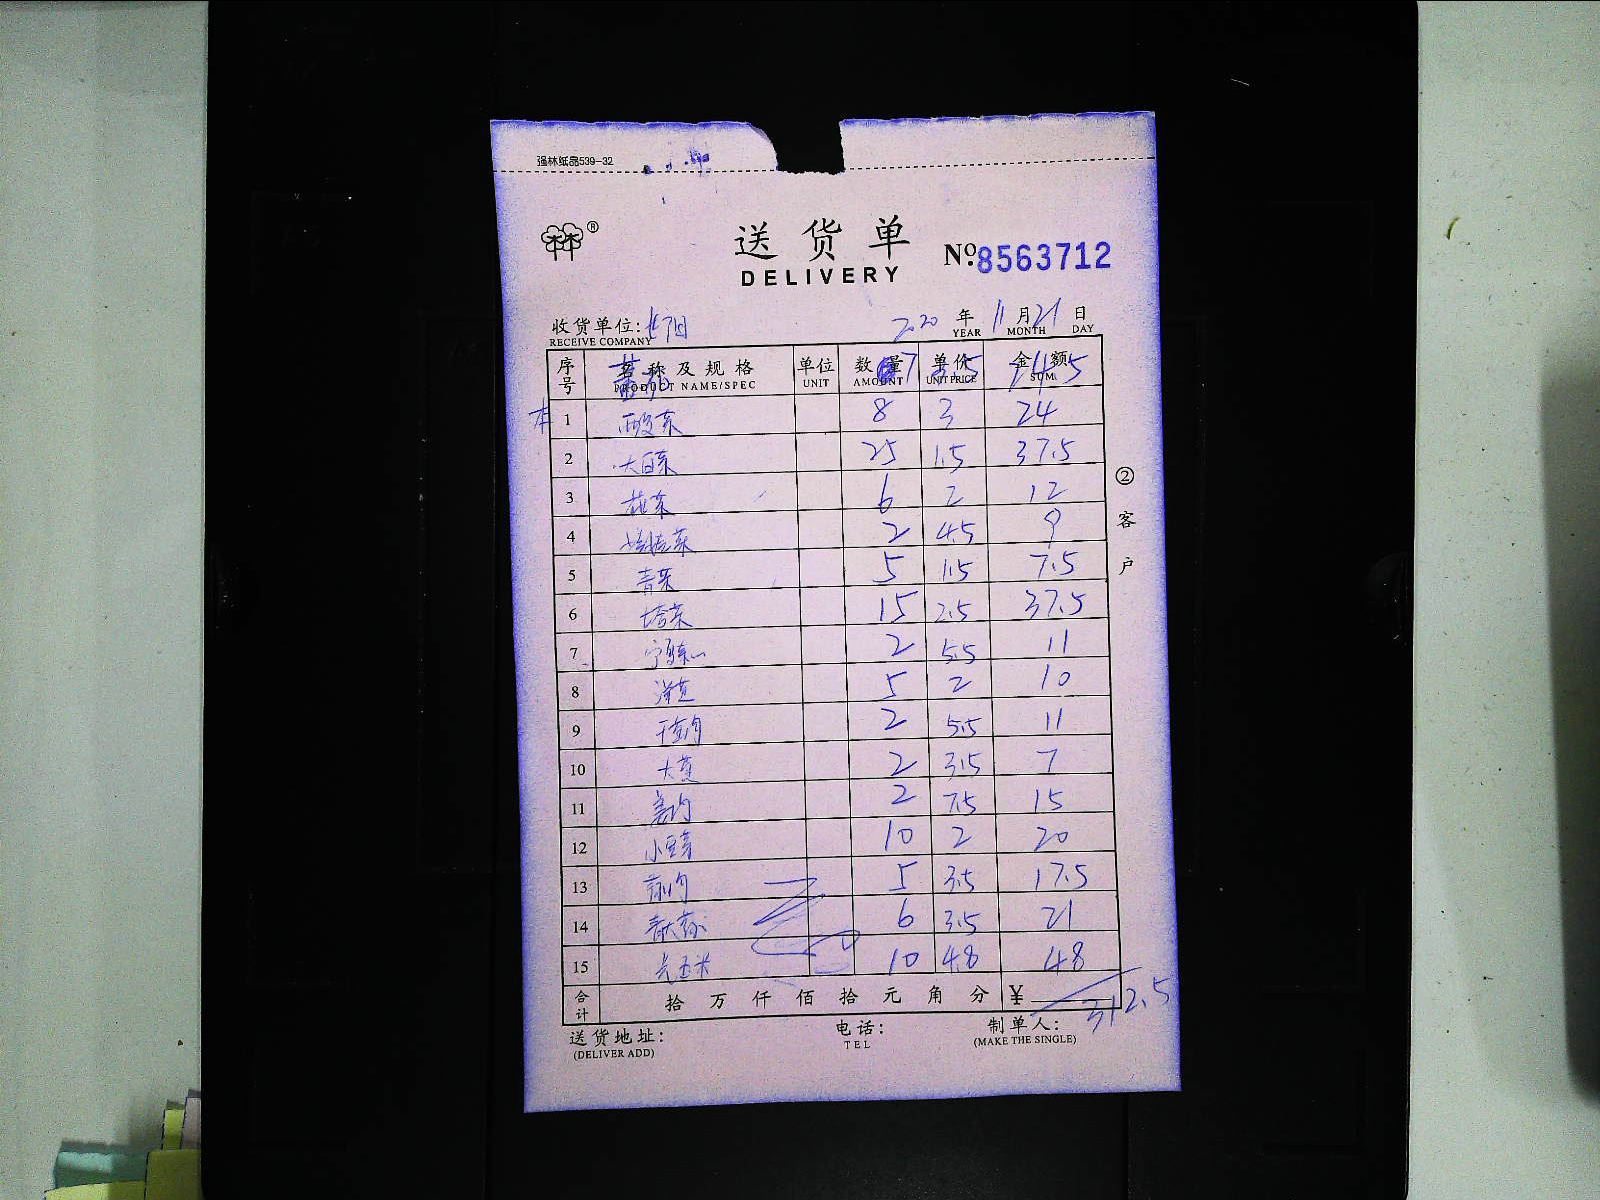 强林纸品539-32
林林®
送货单
DELIVERY
No.8563712
收货单位:
RECEIVE COMPANY
2020 年 11 月 21 日
YEAR MONTH DAY
序号 名称及规格 单位 数量 单价 金额
PRODUCT NAME/SPEC UNIT AMOUNT UNIT PRICE SUM
7 3.5 24.5
1 8 3 24
2 大白菜 25 1.5 37.5
3 6 2 12
4 2 4.5 9
5 青菜 5 1.5 7.5
6 塔菜 15 2.5 37.5
7 2 5.5 11
8 5 2 10
9 2 5.5 11
10 2 3.5 7
11 2 7.5 15
12 小豆芽 10 2 20
13 5 3.5 17.5
14 6 3.5 21
15 10 4.8 48
合计 拾 万 仟 佰 拾 元 角 分 ¥ 312.5
② 客户
送货地址: 电话: 制单人:
(DELIVER ADD) TEL (MAKE THE SINGLE)